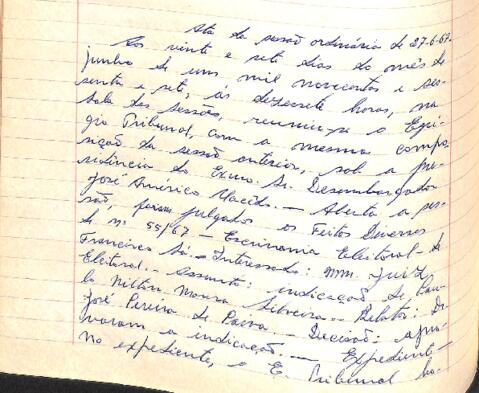 Ata da sessão ordinária de 27-6-67.
Aos vinte e sete dias do mês de
junho de um mil novecentos e ses-
senta e sete, às dezessete horas, na
sala das sessões, reuniu-se o Egré-
gio Tribunal, com a mesma compo-
sição da sessão anterior, sob a pre-
sidência do Exmo. Sr. Desembargador
José Américo Macêdo. — Aberta a ses-
são, foram julgados os Feitos Diversos
de nº 55/67 — Escrivania Eleitoral de
Francisco Sá. — Interessado: MM. Juiz
Eleitoral. — Assunto: indicação de
Nilton Moura Silveira — Relator: Dr.
José Pereira de Paiva. — Decisão: apro-
varam a indicação. — Expediente —
No expediente, o E. Tribunal